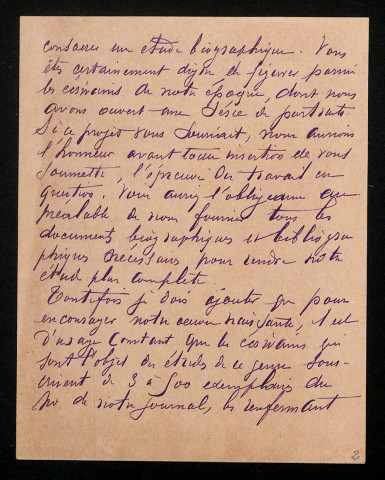 consacrer une étude biographique. Vous
êtes certainement digne de figurer parmi
les écrivains de notre époque, dont nous
avons ouvert une série de portraits.
Si ce projet vous souriait, nous aurions
l'honneur avant toute insertion de vous
soumettre, l'épreuve du travail en
question. Vous auriez l'obligeance au
préalable de nous fournir tous les
documents biographiques et bibliogra
phiques nécessaires pour rendre notre
étude plus complète.
Toutefois je dois ajouter que pour
encourager notre œuvre naissante, il est
d'usage constant que les écrivains qui
sont l'objet des études de ce genre sous-
crivent de 3 à 500 exemplaires du
No de notre journal, les renfermant
2